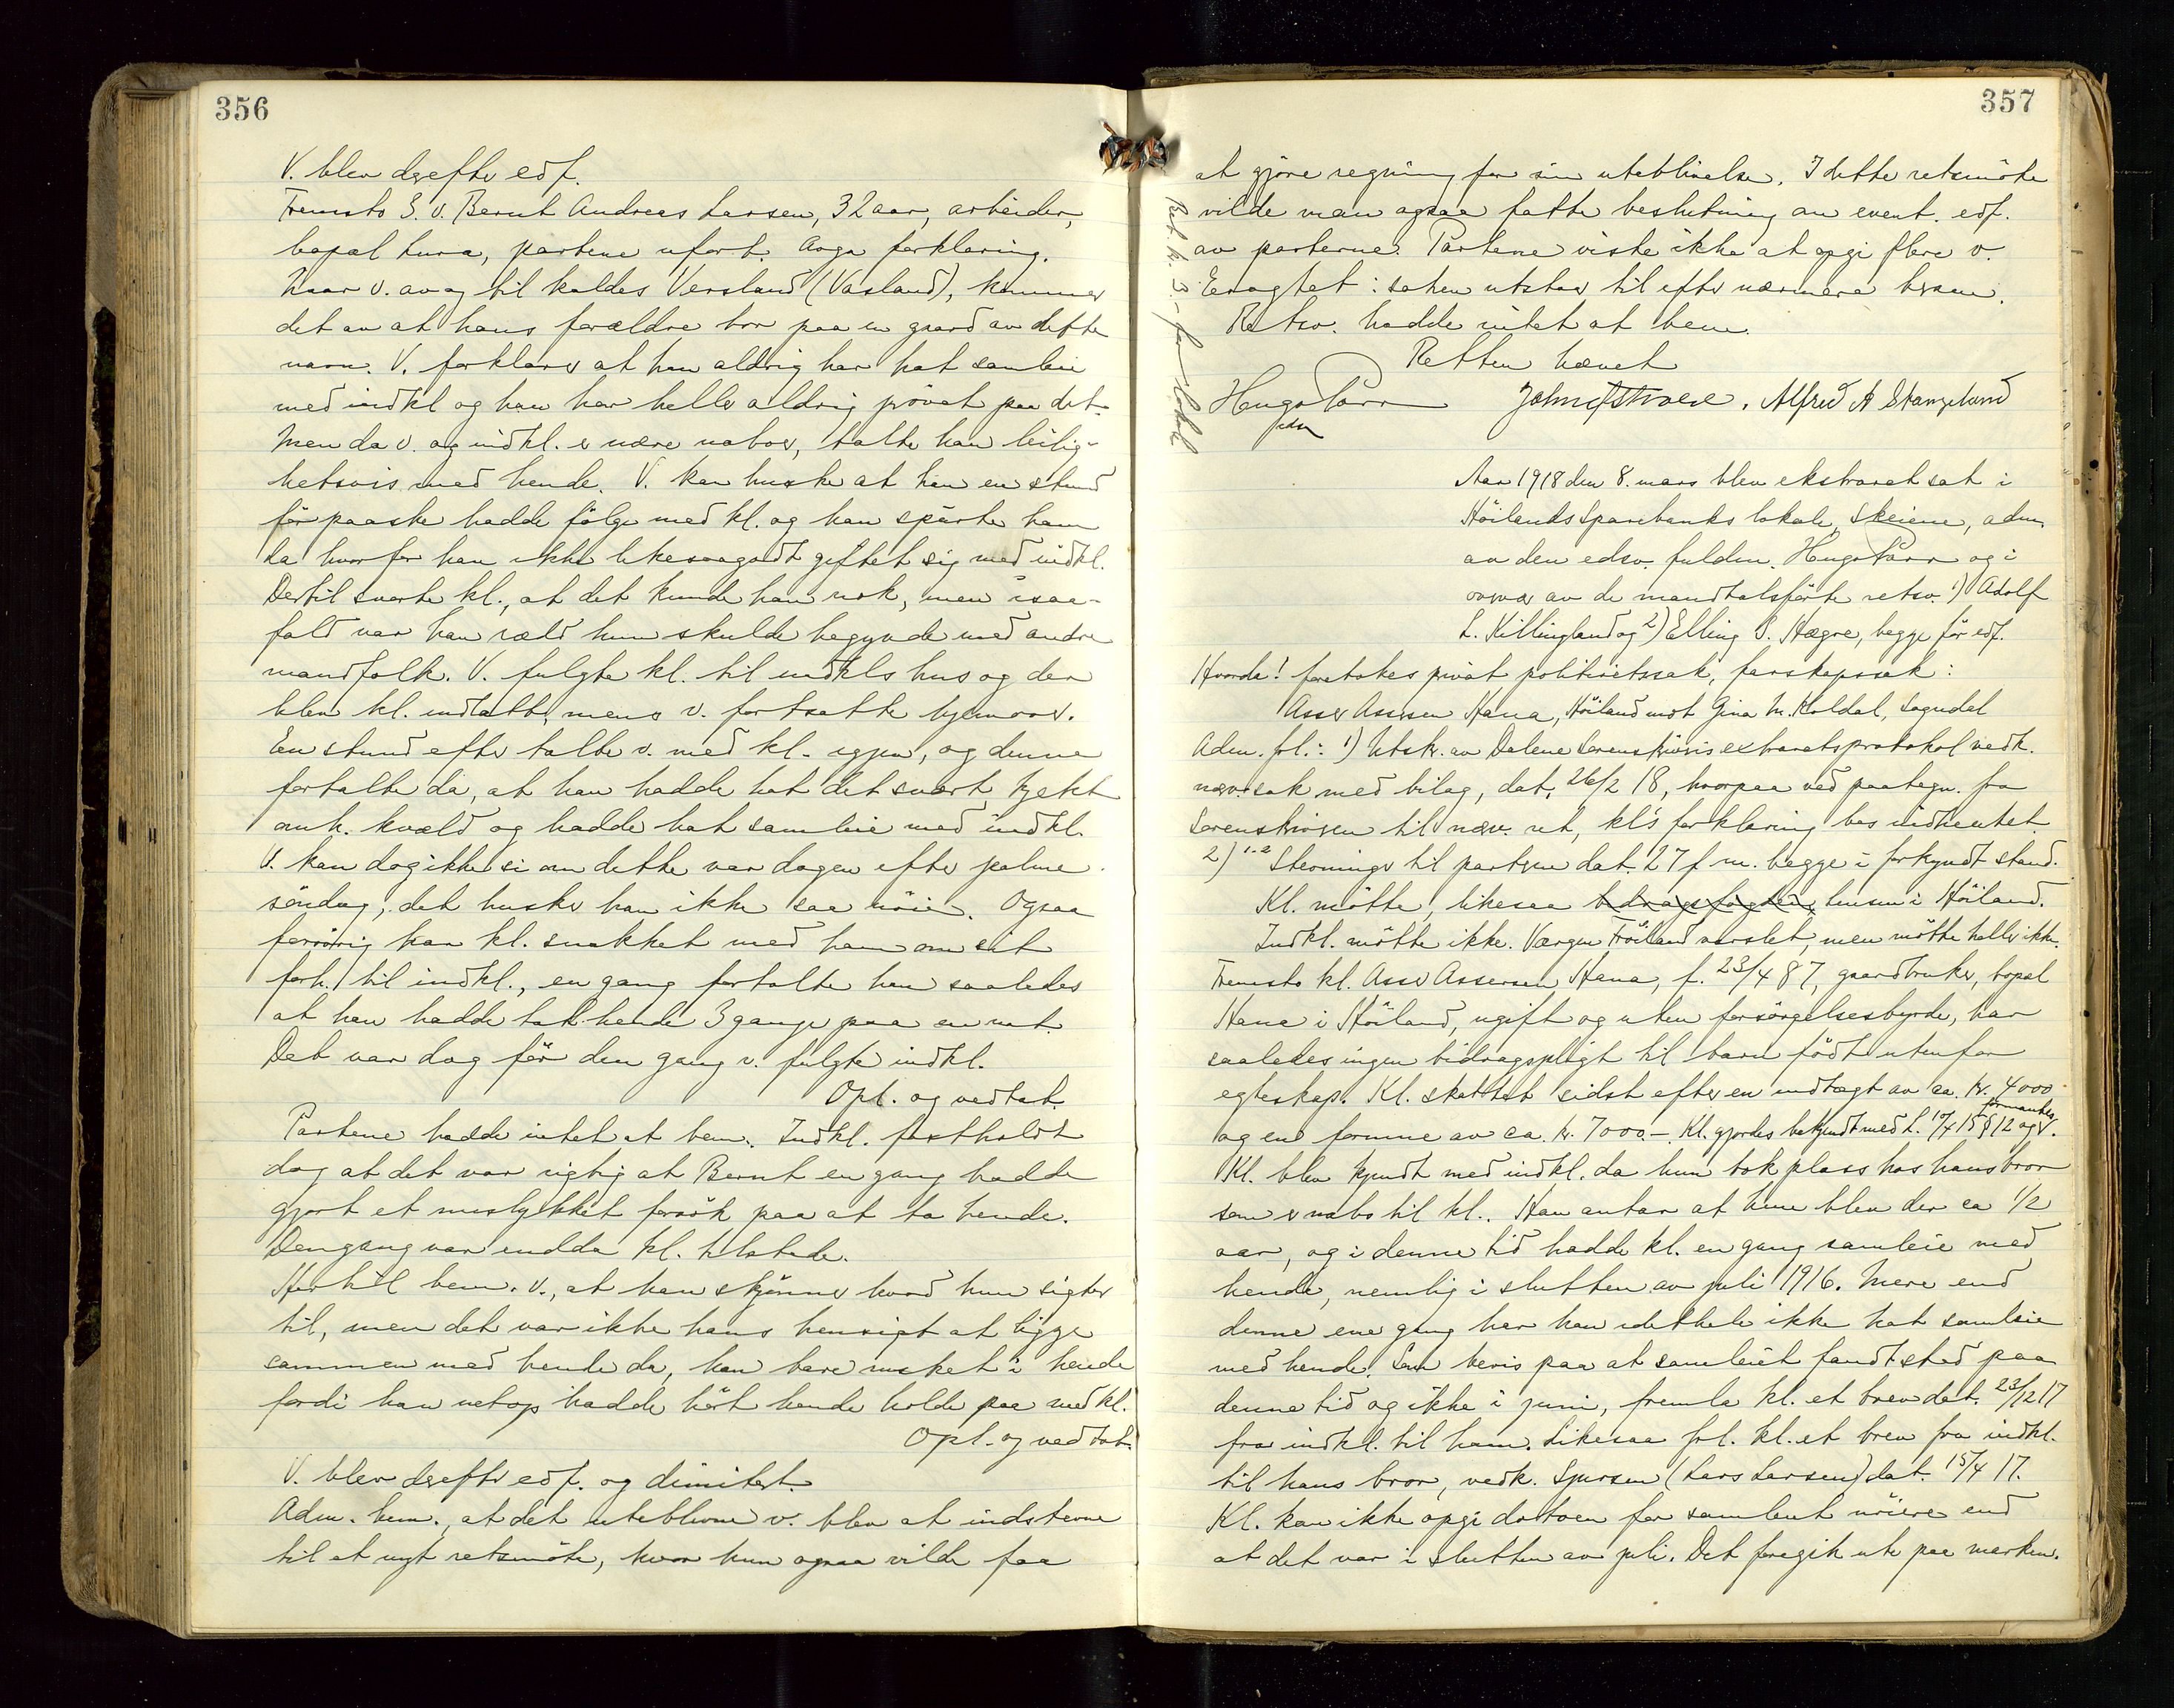 356
V. blev derefter edf.
Fremsto 3. v. Bernt Andreas Larsen, 32 aar, arbeider,
bopæl Lura, partene ufort. Avga forklaring.
Naar v. av og til kaldes Versland (Vasland), kommer
det av at hans forældre bor paa en gaard av dette
navn. V. forklarer at han aldrig har hat samleie
med indkl og han har heller aldrig prövet paa det.
Men da v. og indkl. er nære naboer, talte han leilig-
hetsvis med hende. V. kan huske at han en stund
för paaske hadde fölge med kl. og han spurte ham
da hvorfor han ikke likesaagodt giftet sig med indkl.
Dertil svarte kl., at det kunde han nok, men isaa-
fald var han ræd hun skulde begynde med andre
mandfolk. V. fulgte kl. til indkls hus og der
blev kl. indlatt, mens v. fortsatte hjemover.
En stund efter talte v. med kl. igjen, og denne
fortalte da, at han hadde hat det svært kjekt
omh. kvæld og hadde hat samleie med indkl.
V. kan dog ikke si om dette var dagen efter palme
söndag, det husker han ikke saa nöie. Ogsaa
forövrig har kl. snakket med ham om sit
forh. til indkl., en gang fortalte han saaledes
at han hadde tat hende 3 gange paa en nat.
Det var dog för den gang v. fulgte indkl.
Opl. og vedtat.
Partene hadde intet at bem. Indkl. fastholdt
dog at det var rigtig at Bernt en gang hadde
gjort et mislykket forsök paa at ta hende.
Dengang var endda kl. tilstede.
Hertil bem. v., at han skjönner hvad hun sigter
til, men det var ikke hans hensigt at ligge
sammen med hende da, han bare rusket i hende
fordi han netop hadde hört hende holde paa med kl.
Opl. og vedtat.
V. blev derefter edf. og dimitert.
Adm. bem., at det uteblevne v. blev at indstevne
til et nyt retsmöte, hvor hun ogsaa vilde faa
357
at gjöre regning for sin uteblivelse. I dette retsmöte
vilde man ogsaa fatte beslutning om event. edf.
av parterne. Partene viste ikke at opgi flere v.
Eragtet: saken utstaar til efter nærmere beram.
Retsv. hadde intet at bem.
Retten hævet
Hugo Parr John Alfred A Stangeland
edsv
Ret. kr. 3.- for lokal
Aar 1918 den 8. mars blev ekstraret sat i
Höilands Sparebanks lokale, Skeiene, adm.
av den edsv. fuldm. Hugo Parr og i
overvær av de mandtalsförte retsv. 1) Adolf
L. Killingland og 2) Elling S. Hægre, begge för edf.
Hvorda! foretokes privat politiretssak, farskapssak:
Asser Assersen Hana, Höiland mot Gina M. Koldal, Sogndal
Adm. frl.: 1) Utskr. av Dalene Sorenskriveris extraretsprotokol vedk.
nærv. sak med bilag, dat. 26/2 18, hvorpaa ved paategn. fra
Sorenskriveren til nærv. ret, kl's forklaring bes indhentet.
2) 1-2 Stevninger til partene dat. 27 f. m. begge i forkyndt stand.
Kl. mötte, likesaa bidragsfogden, lensm i Höiland.
Indkl. mötte ikke. Vergen Fröiland varslet, men mötte heller ikke.
Fremsto kl. Asser Assersen Hana, f. 23/4 87, gaardbruker, bopæl
Hana i Höiland, ugift og uten forsörgelsesbyrde, har
saaledes ingen bidragspligt til barn födt utenfor
egteskap. Kl. skattet sidst efter en indtægt av ca. kr. 4000
og en formue av ca. kr. 7000.-. Kl. gjordes bekjendt med L. 10/4 15 § 12 og formantes.
Kl. blev kjendt med indkl. da hun tok plass hos hans bror
som er nabo til kl.. Han antar at hun blev der ca 1/2
aar, og i denne tid hadde kl. en gang samleie med
hende, nemlig i slutten av juli 1916. Mere end
denne ene gang har han idethele ikke hat samleie
med hende. Som bevis paa at samleiet fandt sted paa
denne tid og ikke i juni, fremla kl. et brev dat. 23/12 17
fra indkl. til ham. Likesaa frl. kl. et brev fra indkl.
til hans bror, vedk. Sjursen (Lars Larsen) dat. 15/4 17.
Kl. kan ikke opgi datoen for samleiet nöiere end
at det var i slutten av juli. Det foregik ute paa marken.